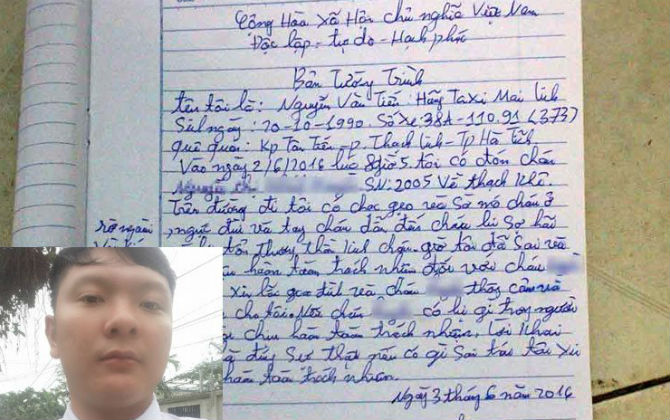 Cộng Hòa Xã Hôn chủ nghĩa Việt Nam
Độc lập - tự do - Hạnh phúc
Bản Tường Trình
tên tôi là: Nguyễn Văn Tiến: Hãng Taxi Mai Linh
Sinh ngày: 20-10-1990 Số xe: 38A-110.91 (373)
quê quán: Kp Tân Tiến - p. Thạch Linh - Tp Hà Tĩnh
Vào ngày 2/6/2016 lúc 8 giờ 5. tôi có đón cháu
SN: 2005 Về thạch Khê.
Trên đường đi tôi có chọc gẹo và Sờ mó cháu ở
ngực đùi và tay cháu dẫn đến cháu bị Sợ hãi
rõ ngoài
tổn thương thần kinh bây giờ tôi đã Sai và
hoàn toàn trách nhiệm đối với cháu
Xin lỗi gia đình và cháu thông cảm và
cho tôi. Nếu cháu có bị gì trong người
chịu hoàn toàn trách nhiệm. Lời Khai
đúng Sự thật nếu có gì Sai trái tôi xin
hoàn toàn trách nhiệm.
Ngày 3 tháng 6 năm 2016